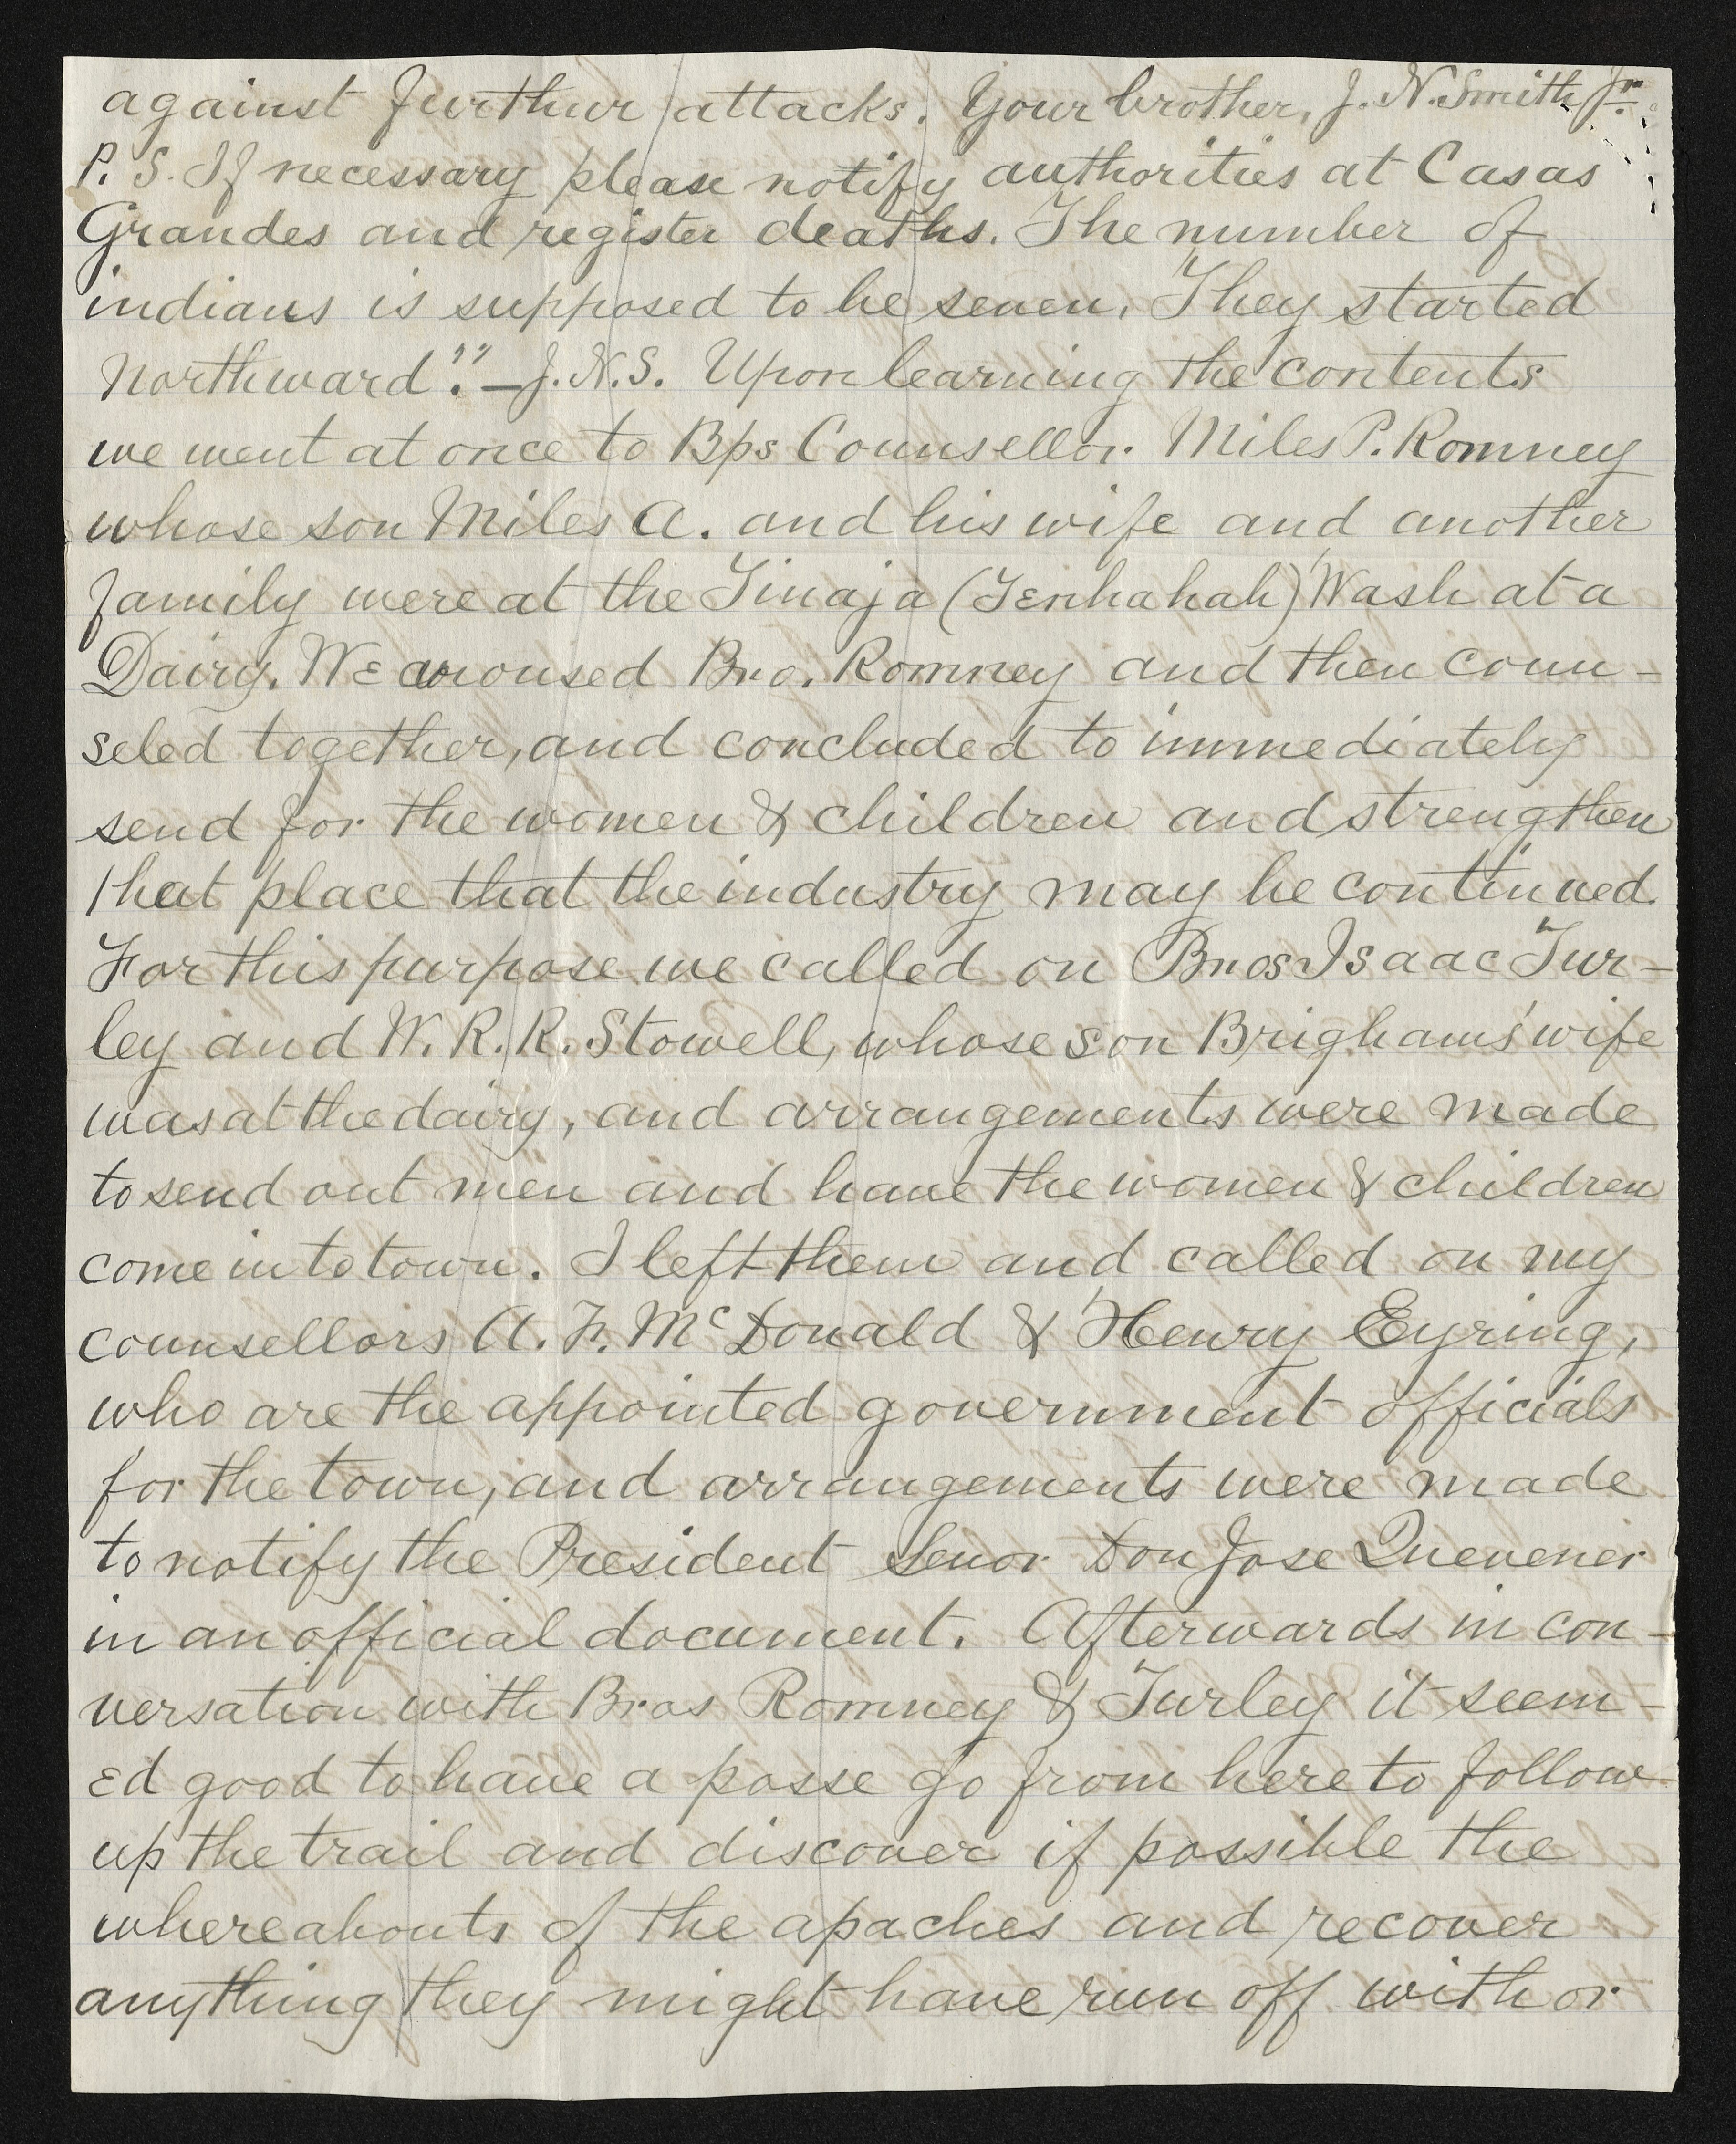 against furthur attacks. Your brother, J. N. Smith Jr.
P. S. If necessary please notify authorities at Casas
Grandes and register deaths. The number of
indians is supposed to be seven. They started
Northward." — J. N. S. Upon learning the contents
we went at once to Bps Counsellor Miles P. Romney
whose son Miles A. and his wife and another
family were at the Tinaja (Tenhahah) Wash at a
Dairy. We aroused Bro. Romney and then coun-
seled together, and concluded to immediately
send for the women & children and strengthen
that place that the industry may be continued.
For this purpose we called on Bros Isaac Tur-
ley and W. R. R. Stowell, whose son Brigham's wife
was at the dairy, and arrangements were made
to send out men and have the women & children
come in to town. I left them and called on my
counsellors A. F. McDonald & Henry Eyring,
who are the appointed government officials
for the town, and arrangements were made
to notify the President Senor Don Jose Quevener
in an official document. Afterwards in con-
versation with Bros Romney & Turley it seem-
ed good to have a posse go from here to follow
up the trail and discover if possible the
whereabouts of the apaches and recover
anything they might have run off with or